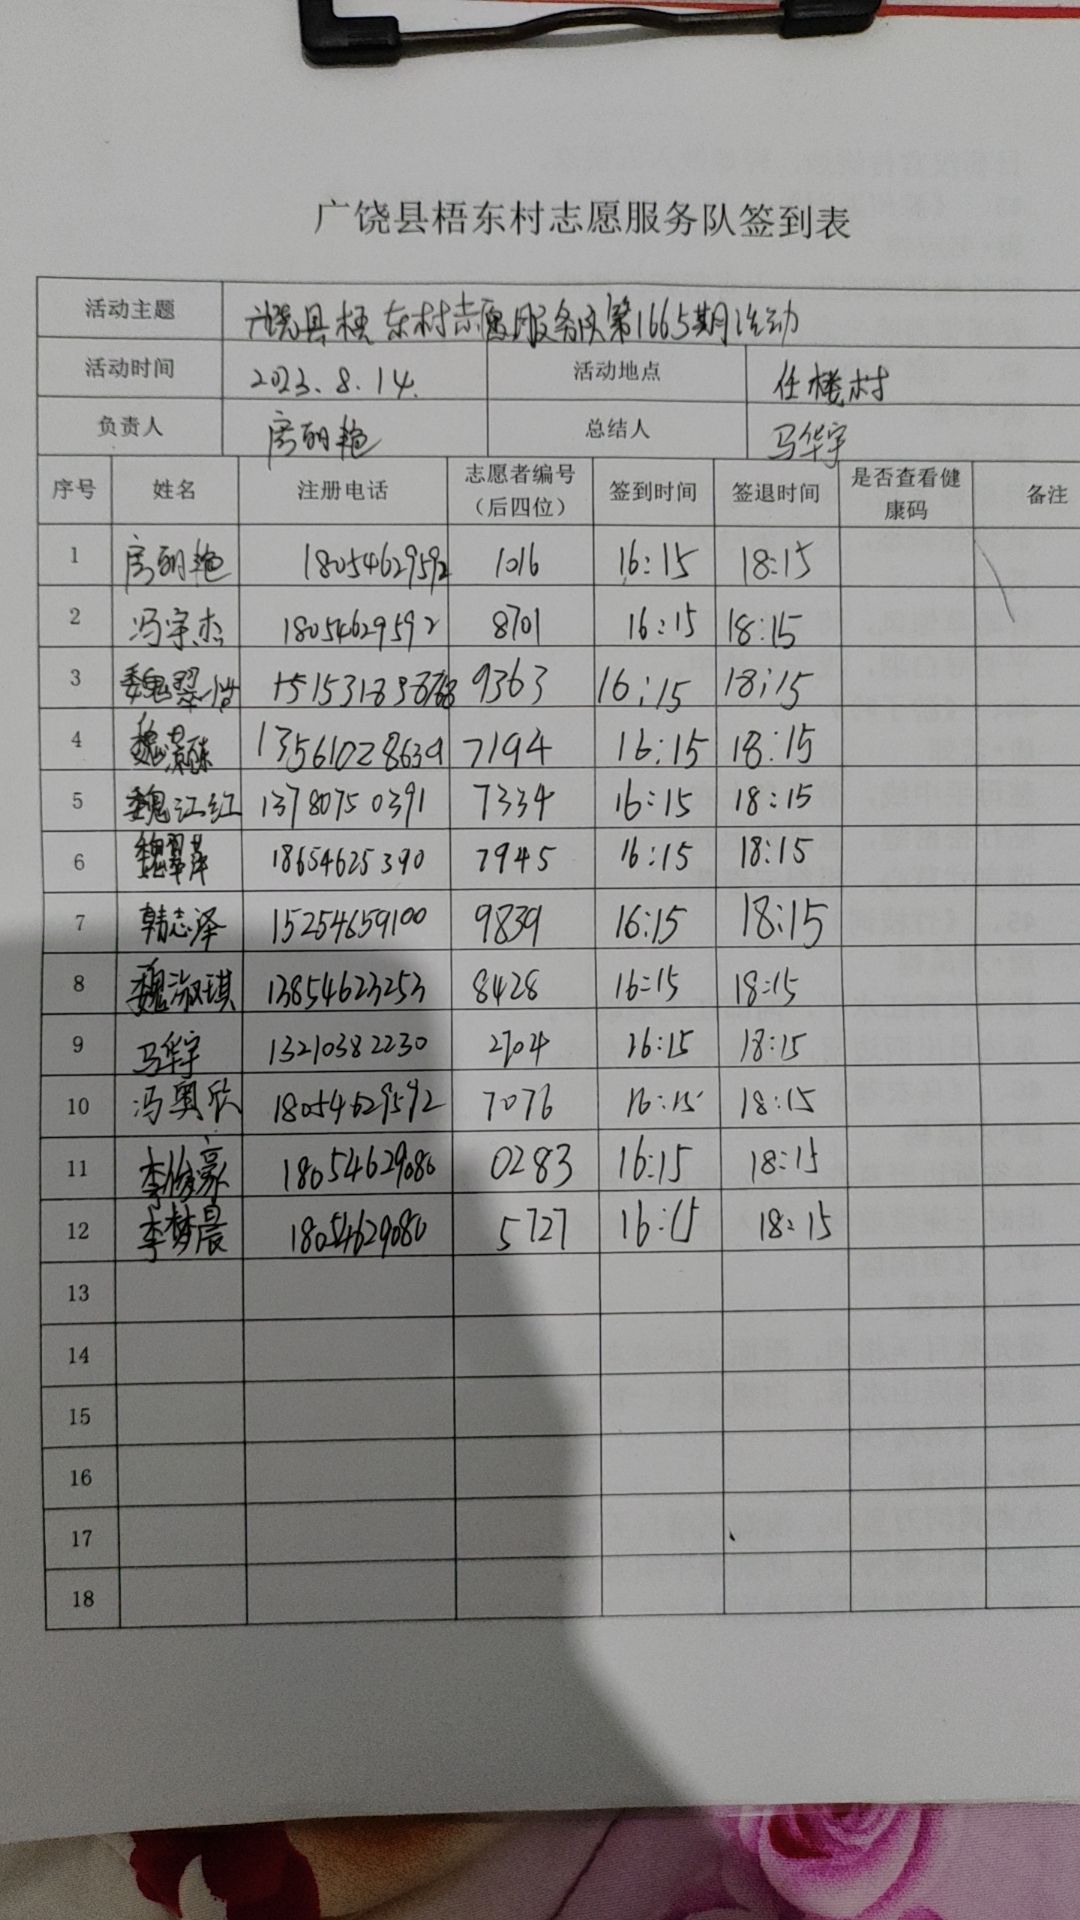 广饶县梧东村志愿服务队签到表
活动主题 广饶县梧东村志愿服务队第1665期活动
活动时间 2023.8.14. 活动地点 任楼村
负责人 房丽艳 总结人 马华宇
序号 姓名 注册电话 志愿者编号（后四位） 签到时间 签退时间 是否查看健康码 备注
1 房丽艳 18054629592 1016 16:15 18:15
2 冯宇杰 18054629592 8701 16:15 18:15
3 魏翠怡 9363 16:15 18:15
4 魏 13561028639 7194 16:15 18:15
5 魏江红 13780750391 7334 16:15 18:15
6 魏翠萍 18654625390 7945 16:15 18:15
7 韩志泽 15254659100 9839 16:15 18:15
8 魏淑琪 13854623253 8428 16:15 18:15
9 马华宇 13210382230 2704 16:15 18:15
10 冯奥欣 18054629592 7076 16:15 18:15
11 李俊豪 18054629080 0283 16:15 18:15
12 李梦晨 18054629080 5727 16:15 18:15
13
14
15
16
17
18